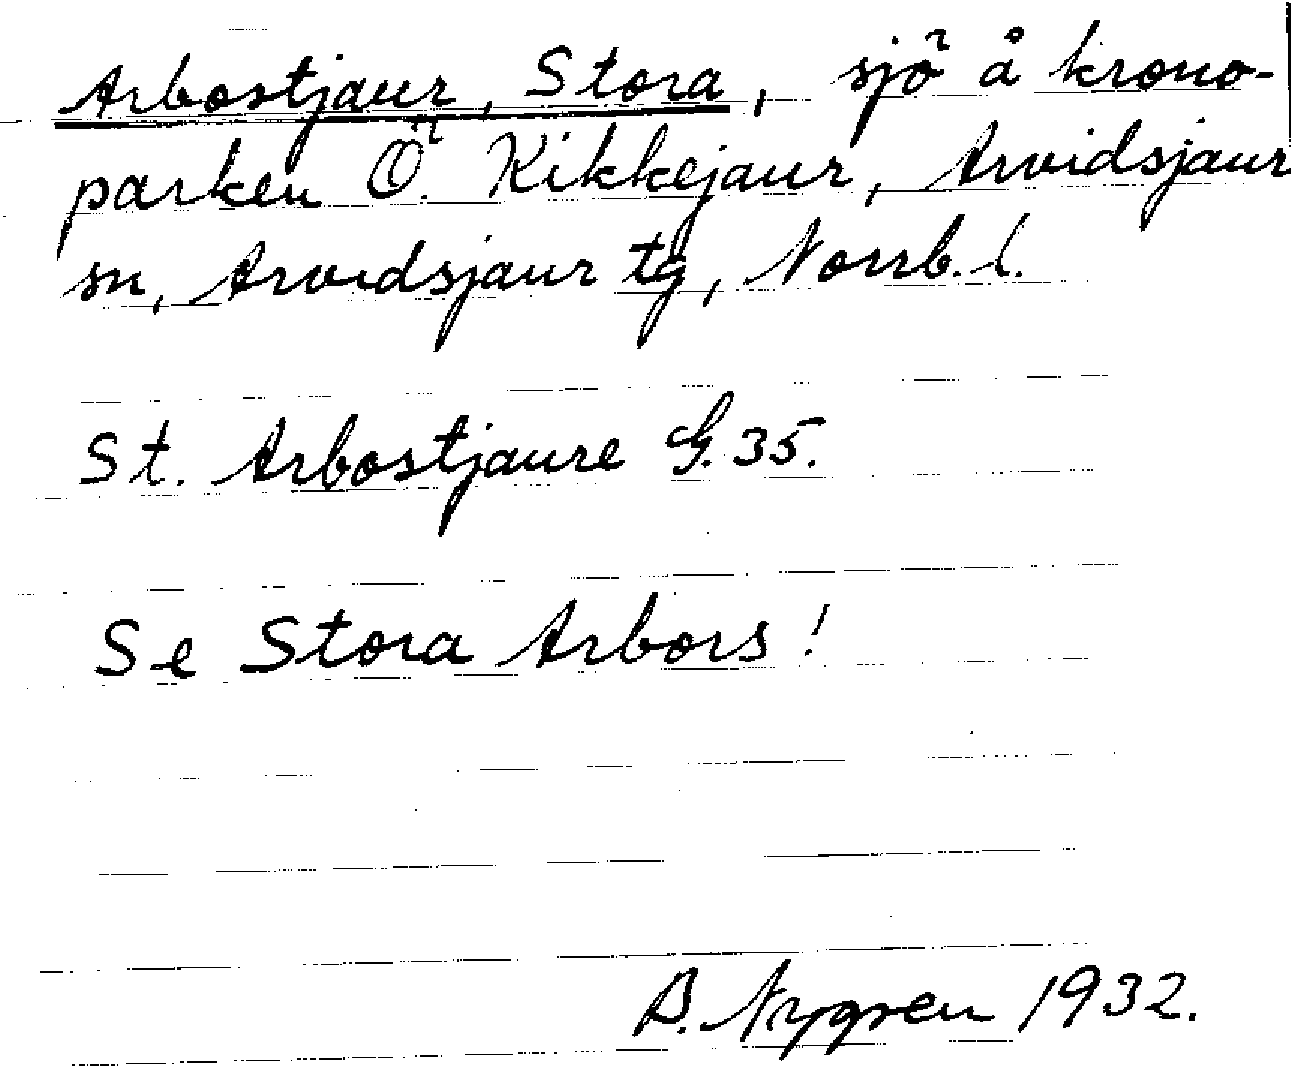 Arbostjaur, Stora, sjö å krono-
parken Ö. Kikkejaur, Arvidsjaur
sn, Arvidsjaur tg, Norrb. l.
St. Arbostjaure G. 35.
Se Stora Arbors!
B. Nygren 1932.